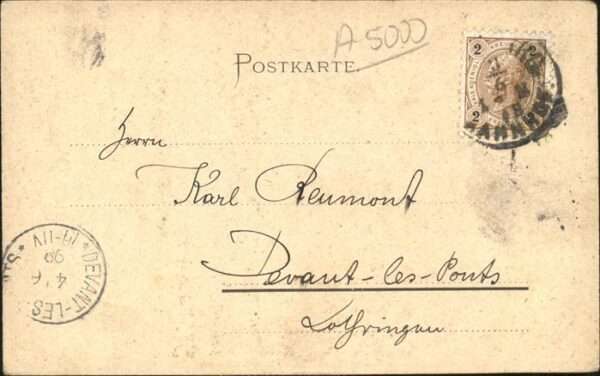 A 5000
POSTKARTE.
2 2
2
BAHNHOF
Herrn
Karl Reumont
Devant-les-Ponts
Lothringen
DEVANT-LES
4/6
99